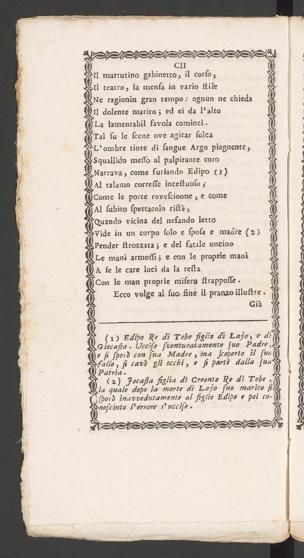 CII
Il mattutino gabinetto, il corso,
Il teatro, la mensa in vario stile
Ne ragionin gran tempo: ognun ne chieda
Il dolente marito; ed ei da l'alto
La lamentabil favola cominci.
Tal su le scene ove agitar solea
L'ombre tinte di sangue Argo piagnente,
Squallido messo al palpitante coro
Narrava, come furiando Edipo (1)
Al talamo corresse incestuoso;
Come le porte rovescionne, e come
Al subito spettacolo ristè,
Quando vicina del nefando letto
Vide in un corpo solo e sposa e madre (2)
Pender strozzata; e del fatale uncino
Le mani armossi; e con le proprie mani
A se le care luci da la testa
Con le man proprie misero strapposse.
Ecco volge al suo fine il pranzo illustre.
Già
(1) Edipo Re di Tebe figlio di Lajo, e di
Giocasta. Uccise sventuratamente suo Padre,
e si sposò con sua Madre, ma scoperto il suo
fallo, si cavò gli occhi, e si partì dalla sua
Patria.
(2) Jocasta figlia di Creonte Re di Tebe,
la quale dopo la morte di Lajo suo marito si
sposò inavvedutamente al figlio Edipo e poi co-
nosciuto l'errore s'uccise.